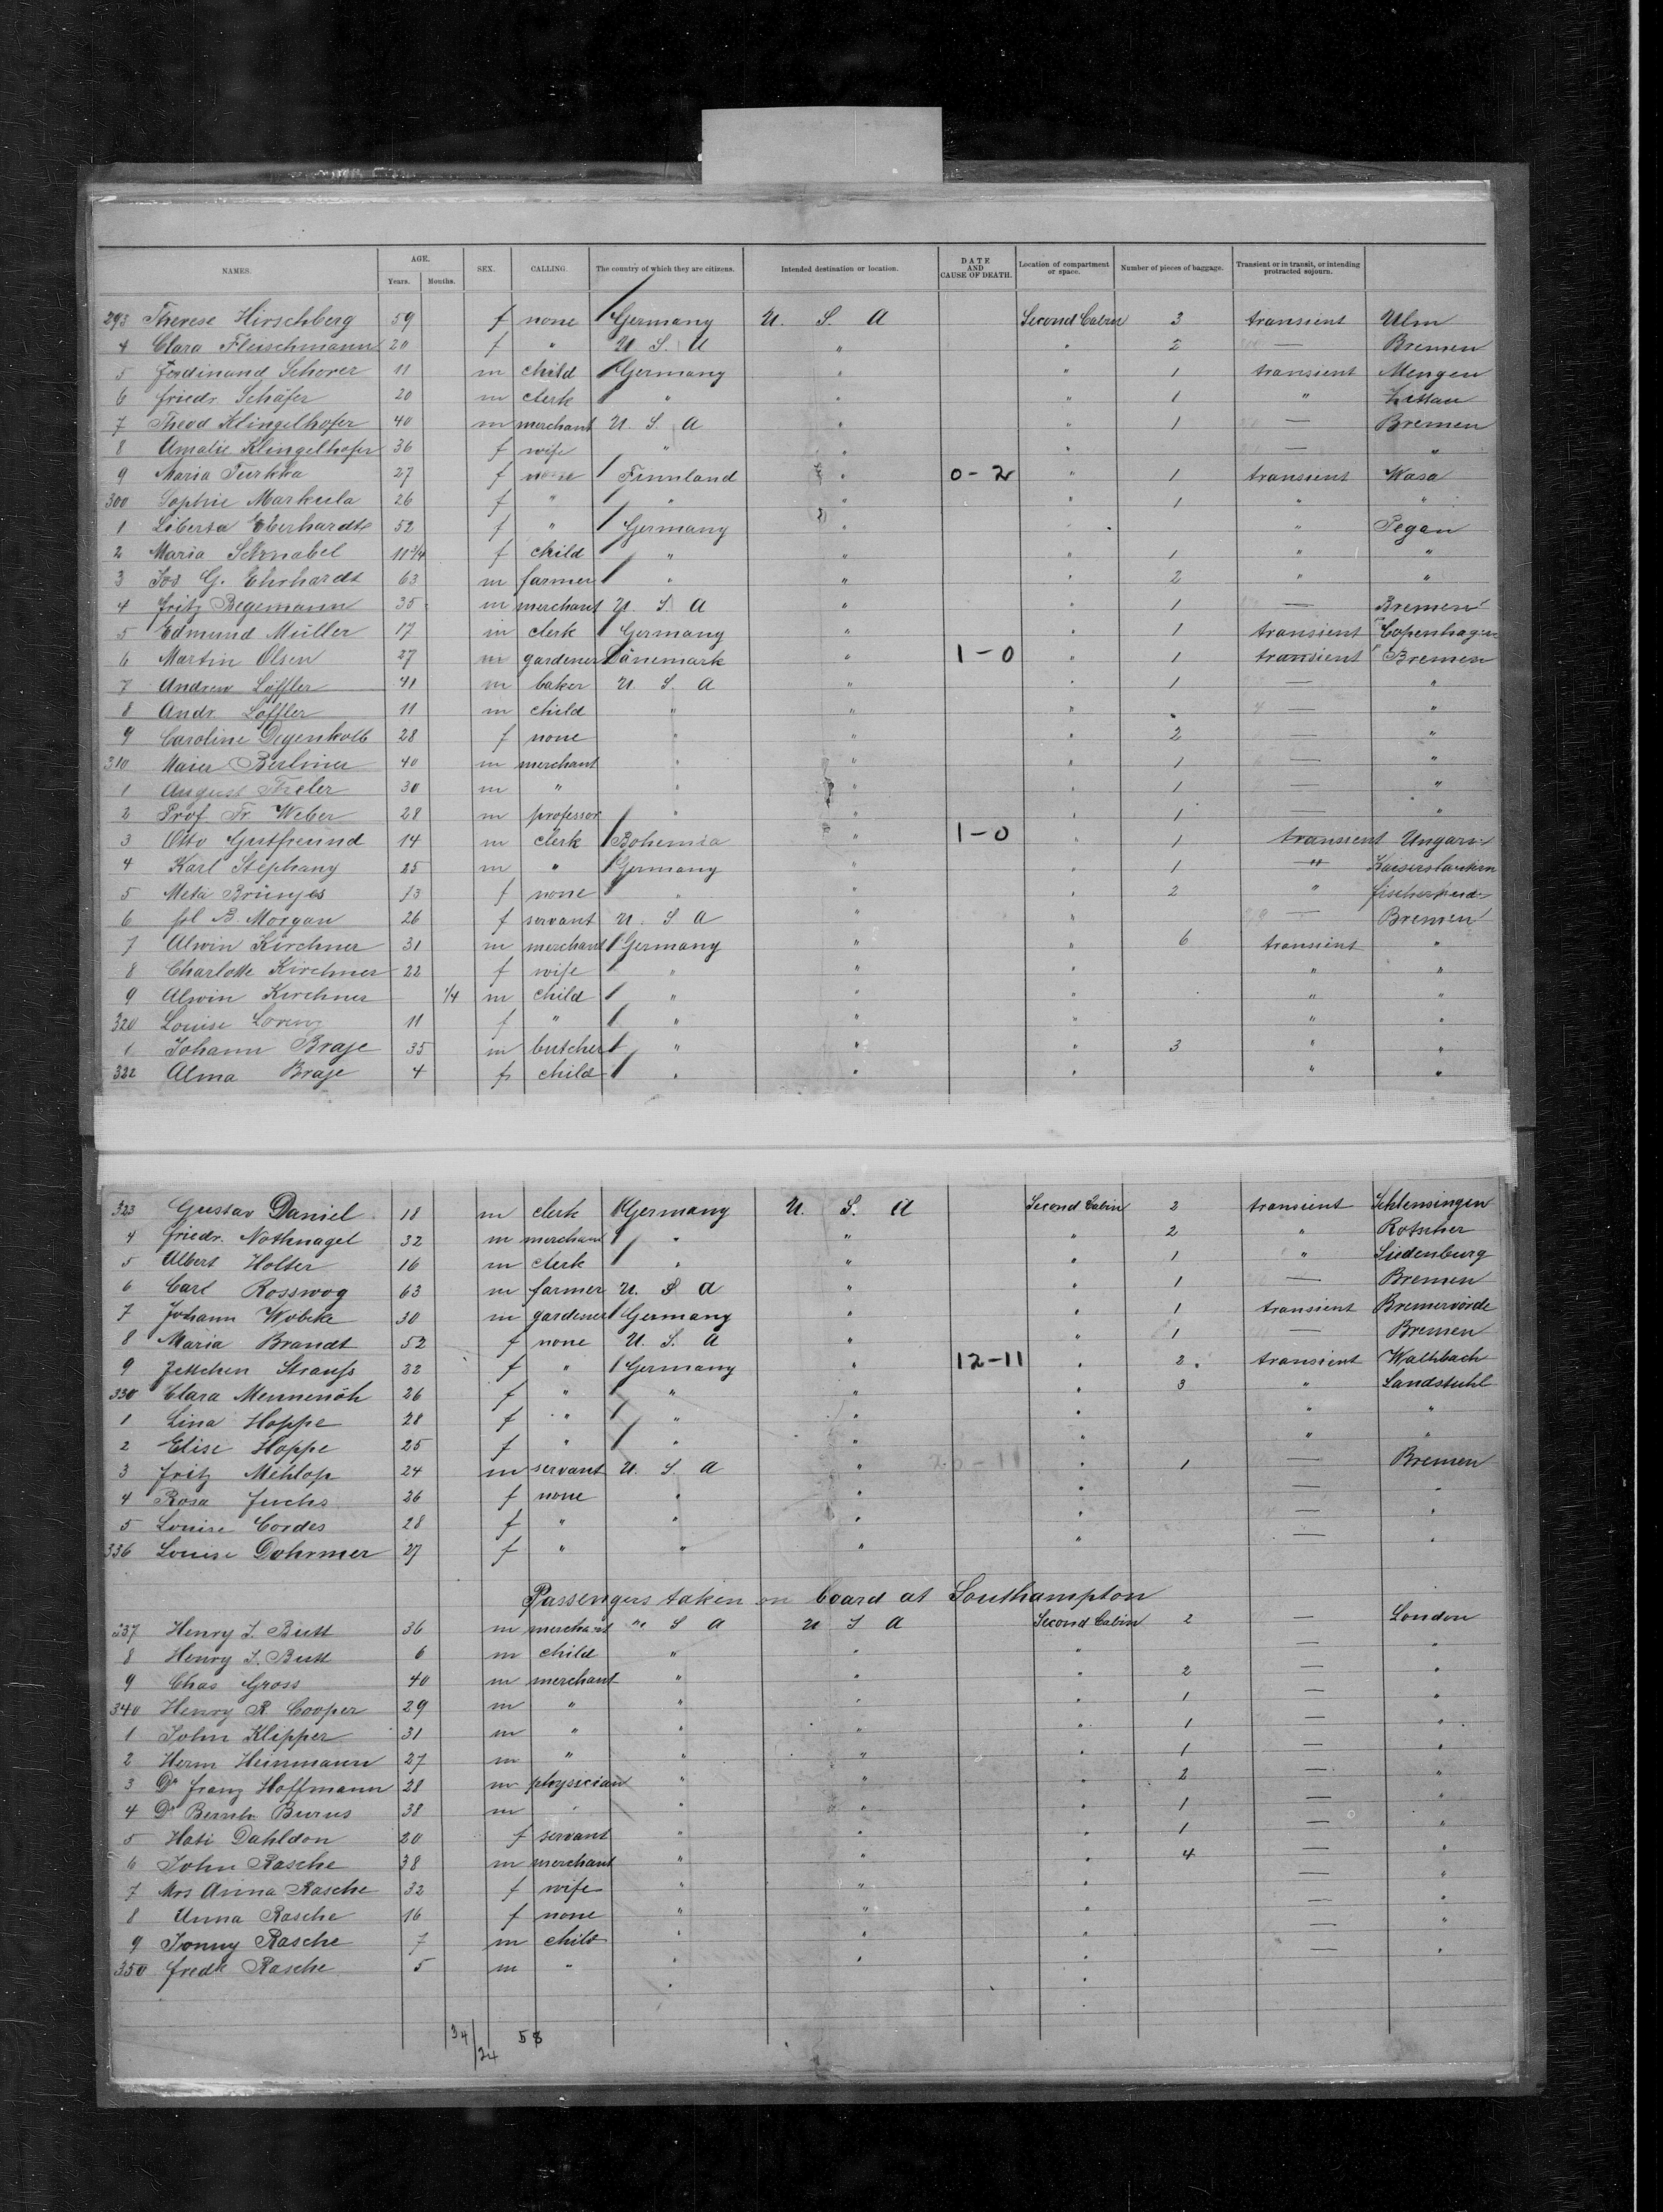 NAMES. AGE. SEX. CALLING. The country of which they are citizens. Intended destination or location. DATE AND CAUSE OF DEATH. Location of compartment or space. Number of pieces of baggage. Transient or in transit, or intending protracted sojourn.
Years. Months.
293 Therese Hirschberg 59 f none Germany U. S. A Second Cabin 3 transient Ulm
4 Clara Fleischmann 20 f " U. S. A " " 2 — Bremen
5 Ferdinand Schorer 11 m child Germany " " 1 transient Mengen
6 Friedr Schäfer 20 m clerk " " " 1 " Zittau
7 Theod Klingelhofer 40 m merchant U. S. A " " 1 — Bremen
8 Amalie Klingelhofer 36 f wife " " " — "
9 Maria 27 f none Finnland " 0-2 " 1 transient Wasa
300 Sophie Markula 26 f " " " " 1 " "
1 Liberta Eberhardt 52 f " Germany " " " Pegau
2 Maria Schnabel 11 3/4 f child " " " 1 " "
3 Jos G. Ehrhardt 63 m farmer " " " 2 " "
4 Fritz Begemann 35 m merchant U. S. A " " 1 — Bremen
5 Edmund Müller 17 m clerk Germany " " 1 transient Copenhagen
6 Martin Olsen 27 m gardener Dänemark " 1-0 " 1 transient Bremen
7 Andrew Löffler 41 m baker U. S. A " " 1 — "
8 Andr. Löffler 11 m child " " " — "
9 Caroline Degenkolb 28 f none " " " 2 — "
310 Maier Berliner 40 m merchant " " " 1 — "
1 August 30 m " " " " 1 — "
2 Prof Fr. Weber 28 m professor " " " 1 — "
3 Otto Gutfreund 14 m clerk Bohemia " 1-0 " 1 transient Ungarn
4 Karl Stephany 25 m " Germany " " 1 " Kaiserslautern
5 Meta Brünjes f none " " " 2 " Fischerhude
6 frl B. Morgan 26 f servant U. S A " " — Bremen
7 Alwin Kirchner 31 m merchant Germany " " 6 transient "
8 Charlotte Kirchner 22 f wife " " " " "
9 Alwin Kirchner 1/4 m child " " " " "
320 Louise Lorenz 11 f " " " " " "
1 Johann Braje 35 m butcher " " " 3 " "
322 Alma Braje 4 f child " " " " "
323 Gustav Daniel 18 m clerk Germany U. S. A Second Cabin 2 transient Schleusingen
4 Friedr. Nothnagel 32 m merchant " " " 2 " Rotscher
5 Albert Holter 16 m clerk " " " 1 " Siedenburg
6 Carl Rosswog 63 m farmer U. S A " " 1 — Bremen
7 Johann Wöbcke 30 m gardener Germany " " 1 transient Bremervörde
8 Maria Brandt 52 f none U. S. A " " 1 — Bremen
9 Jettchen Strauss 22 f " Germany " 12-11 " 2 transient
330 Clara Mennenöh 26 f " " " " 3 " Landstuhl
1 Lina Hoppe 28 f " " " " " "
2 Elise Hoppe 25 f " " " " " "
3 Fritz Mehlop 24 m servant U. S. A " " 1 — Bremen
4 Rosa Fuchs 26 f none " " " — "
5 Louise Cordes 28 f " " " " — "
336 Louise Dohrmer 27 f " " " " — "
Passengers taken on board at Southampton
337 Henry J. Butt 36 m merchant U S A U S A Second Cabin 2 — London
8 Henry J. Butt 6 m child " " " — "
9 Chas Gross 40 m merchant " " " 2 — "
340 Henry R Cooper 29 m " " " " 1 — "
1 John Klipper 31 m " " " " 1 — "
2 Herm Heinmann 27 m " " " " 1 — "
3 Dr Franz Hoffmann 28 m physician " " " 2 — "
4 Dr Bernh. Burus 38 m " " " " 1 — "
5 Hati Dahldon 20 f servant " " " 1 — "
6 John Rasche 38 m merchant " " " 4 — "
7 Mrs Anna Rasche 32 f wife " " " — "
8 Anna Rasche 16 f none " " " — "
9 Jonny Rasche 7 m child " " " — "
350 Fredk Rasche 5 m " " " " — "
34/24 58